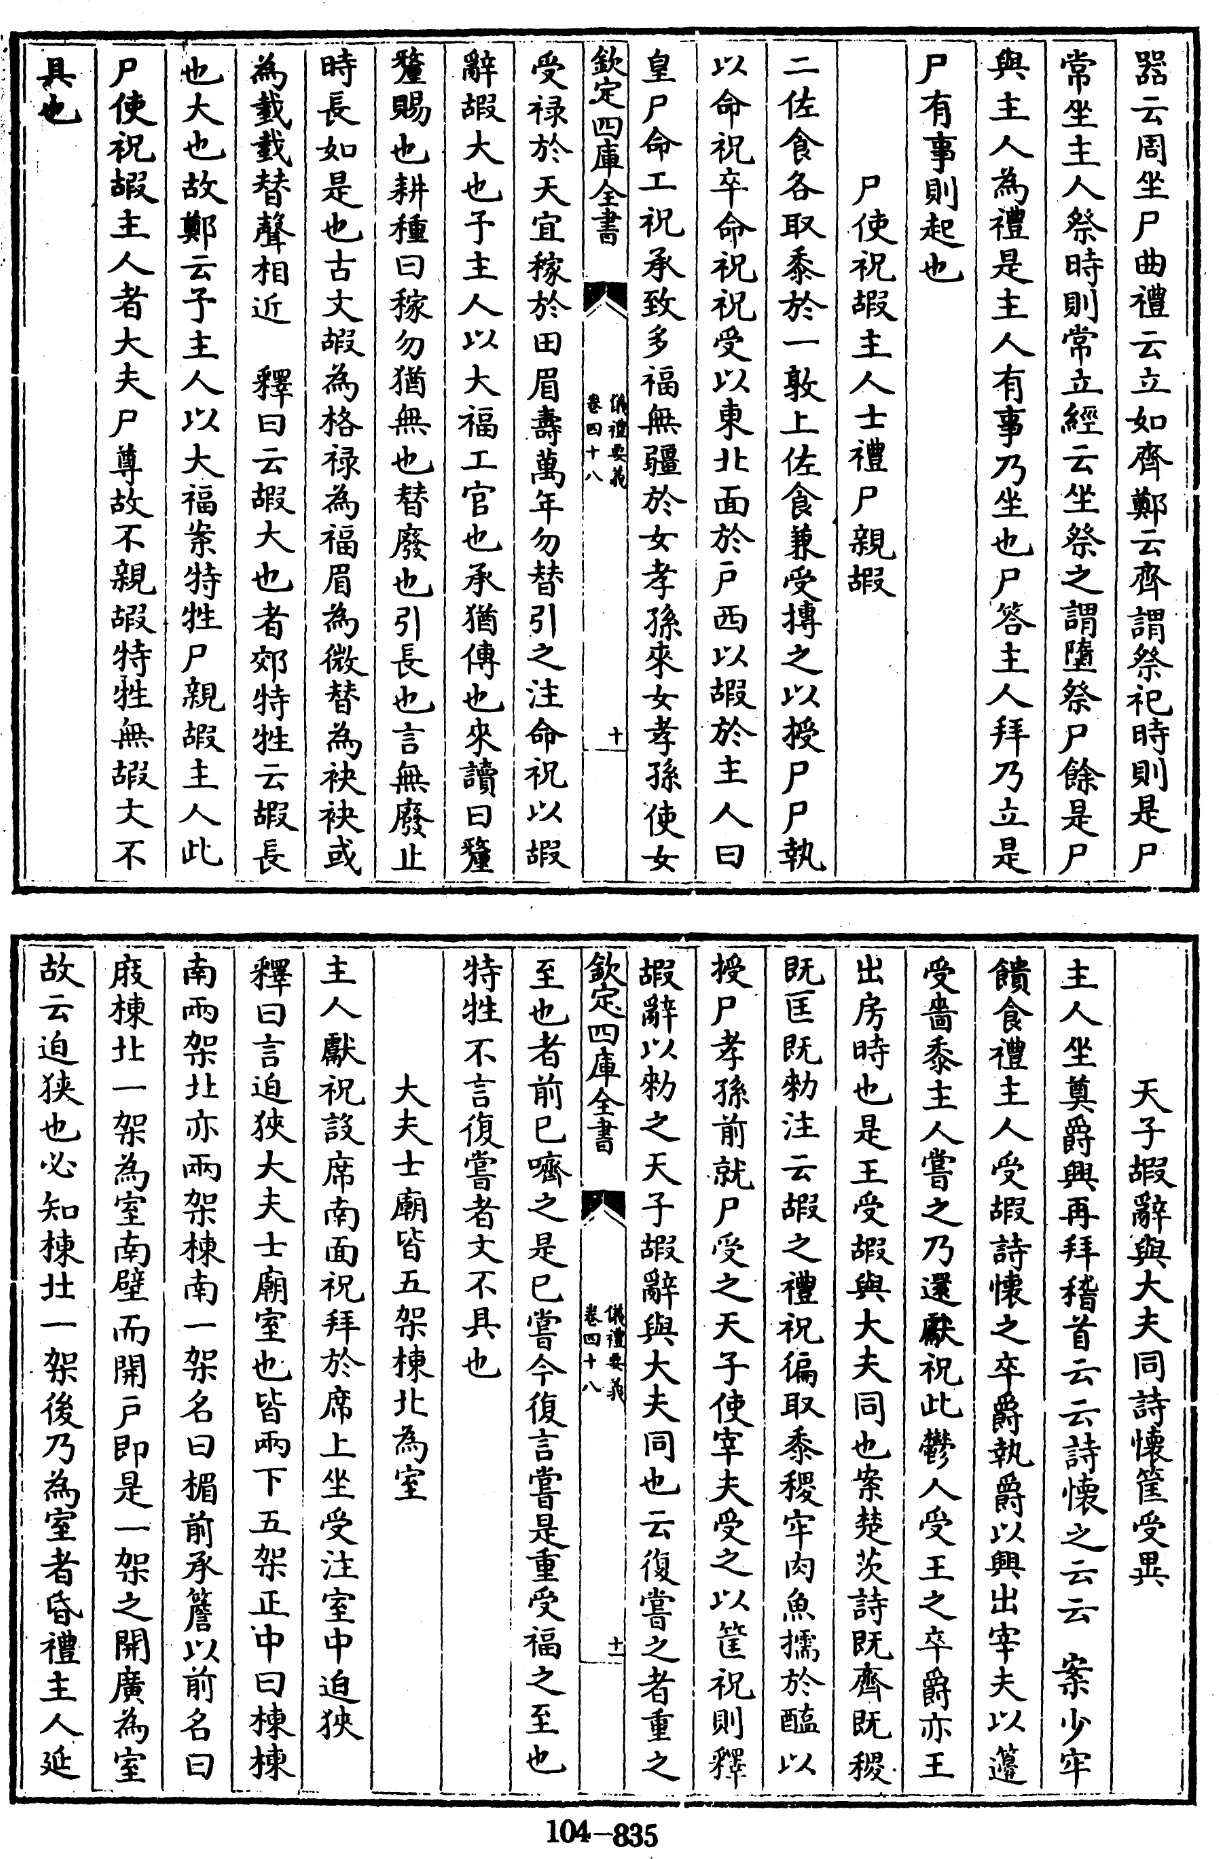 器云周坐尸曲禮云立如齊鄭云齊謂祭祀時則是尸
常坐主人祭時則常立經云坐祭之謂墮祭尸餘是尸
與主人為禮是主人有事乃坐也尸答主人拜乃立是
尸有事則起也
尸使祝嘏主人士禮尸親嘏
二佐食各取黍於一敦上佐食兼受摶之以授尸尸執
以命祝卒命祝祝受以東北面於戶西以嘏於主人曰
皇尸命工祝承致多福無疆於女孝孫來女孝孫使女
欽定四庫全書
儀禮要義
卷四十八
十
受祿於天宜稼於田眉壽萬年勿替引之注命祝以嘏
辭嘏大也予主人以大福工官也承猶傳也來讀曰釐
釐賜也耕種曰稼勿猶無也替廢也引長也言無廢止
時長如是也古文嘏為格祿為福眉為微替為袂袂或
為臷臷替聲相近　釋曰云嘏大也者郊特牲云嘏長
也大也故鄭云予主人以大福案特牲尸親嘏主人此
尸使祝嘏主人者大夫尸尊故不親嘏特牲無嘏文不
具也
天子嘏辭與大夫同詩懷筐受異
主人坐奠爵興再拜稽首云云詩懷之云云　案少牢
饋食禮主人受嘏詩懷之卒爵執爵以興出宰夫以籩
受嗇黍主人嘗之乃還獻祝此鬱人受王之卒爵亦王
出房時也是王受嘏與大夫同也案楚茨詩既齊既稷
既匡既勑注云嘏之禮祝徧取黍稷牢肉魚擩於醢以
授尸孝孫前就尸受之天子使宰夫受之以筐祝則釋
嘏辭以勑之天子嘏辭與大夫同也云復嘗之者重之
欽定四庫全書
儀禮要義
卷四十八
十一
至也者前已嚌之是已嘗今復言嘗是重受福之至也
特牲不言復嘗者文不具也
大夫士廟皆五架棟北為室
主人獻祝設席南面祝拜於席上坐受注室中迫狹
釋曰言迫狹大夫士廟室也皆兩下五架正中曰棟棟
南兩架北亦兩架棟南一架名曰楣前承簷以前名曰
庪棟北一架為室南壁而開戶即是一架之開廣為室
故云迫狹也必知棟北一架後乃為室者昏禮主人延
104-835